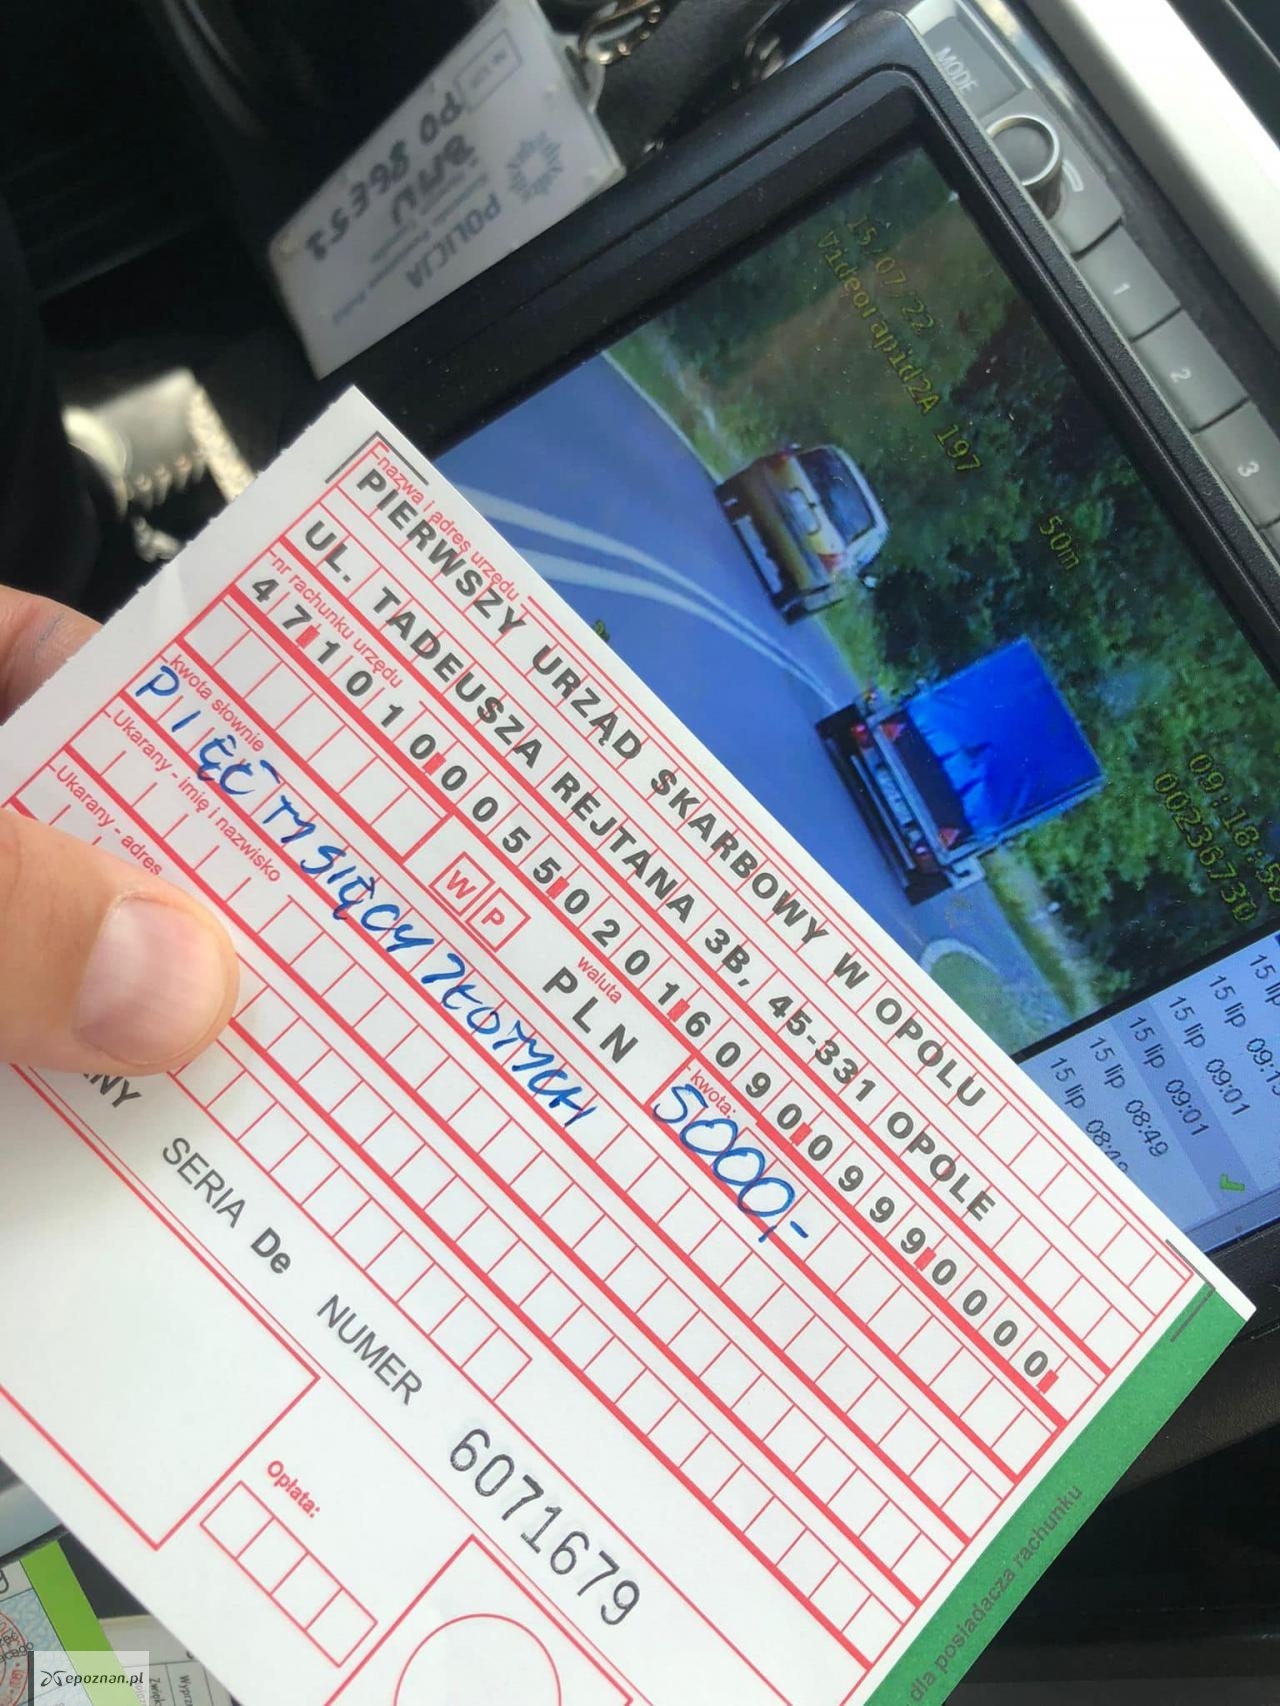 POLICJA
PO 86E53
MODE
1
2
3
15/07/22
Videorapid2A 197
50m
09:18:5
00236730
15 lip
15 lip 09:1
15 lip 09:01
15 lip 09:01
15 lip 08:49
15 lip 08:49
nazwa i adres urzędu
PIERWSZY URZĄD SKARBOWY W OPOLU
UL. TADEUSZA REJTANA 3B, 45-331 OPOLE
nr rachunku urzędu
47 1010 0055 0201 6090 0999 0000
W P
waluta
PLN
kwota:
5000,-
kwota słownie
PIĘĆ TYSIĘCY ZŁOTYCH
Ukarany - imię i nazwisko
Ukarany - adres
ANY
SERIA De NUMER 6071679
Opłata:
dla posiadacza rachunku
epoznan.pl